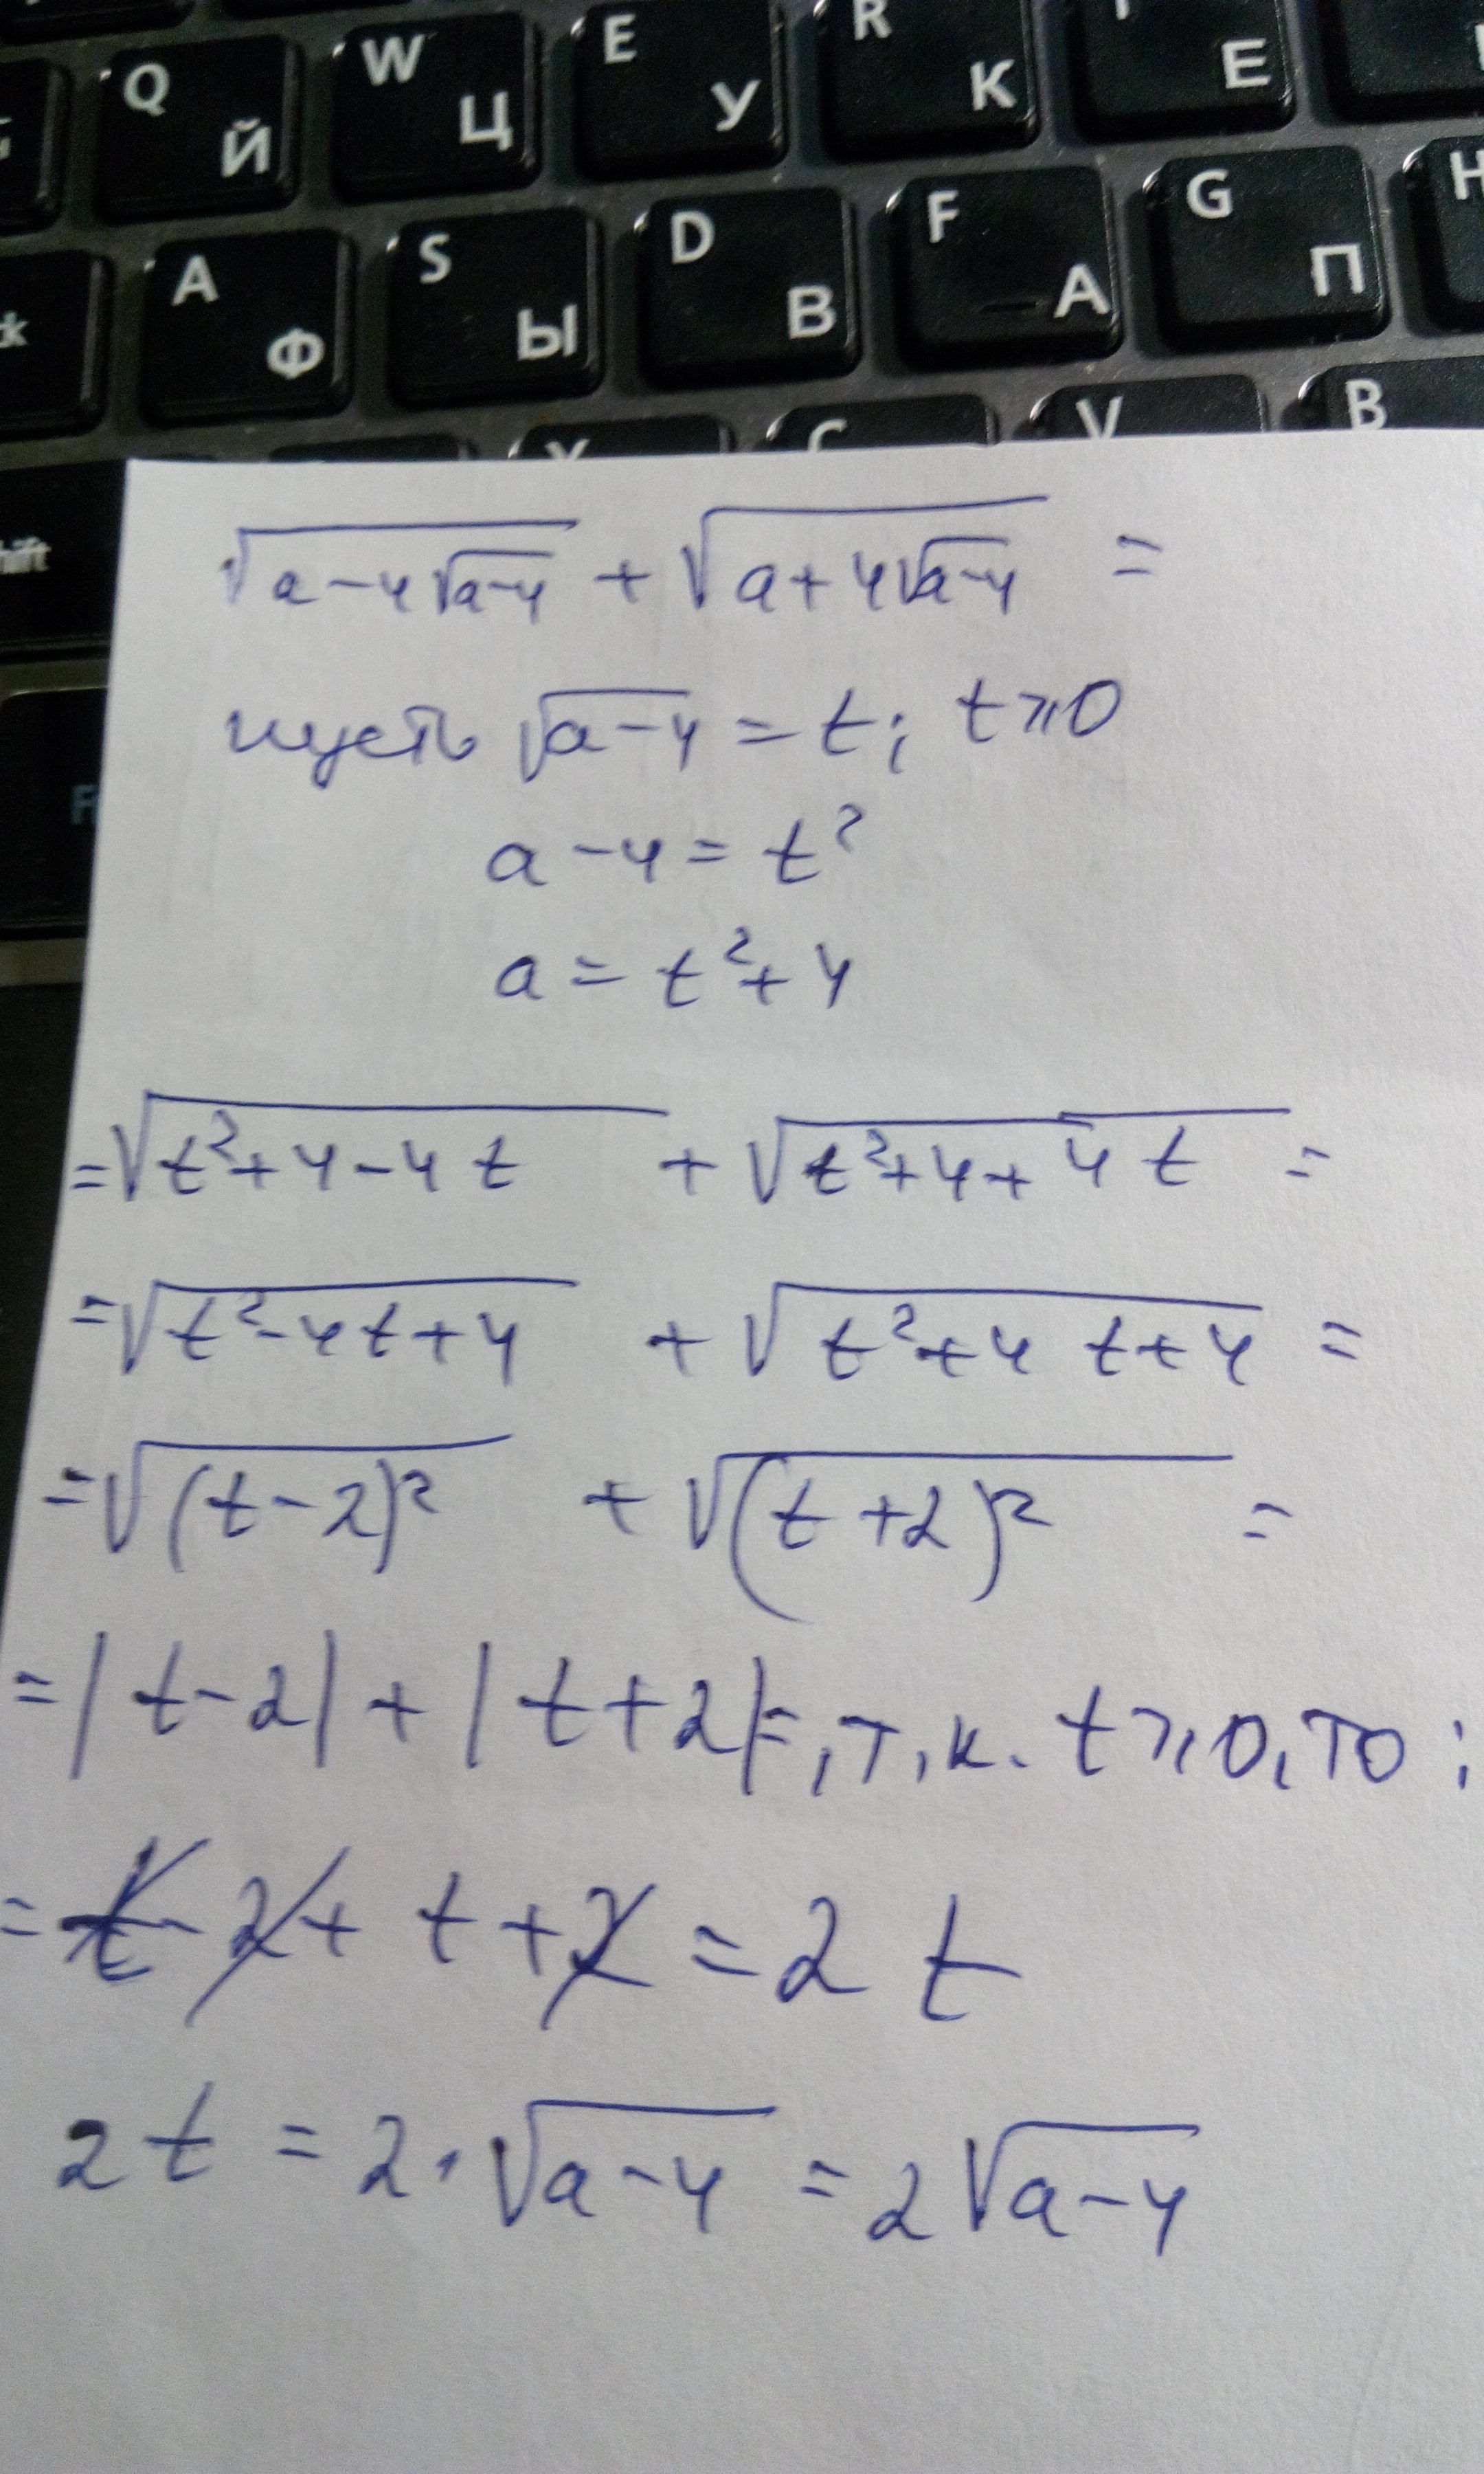 Q Й W Ц E У R К Е
ck A Ф S Ы D В F А G П H
C V B
hift
√(a-4√(a-4)) + √(a+4√(a-4)) =
пусть √(a-4) = t; t⩾0
a-4 = t²
a = t²+4
=√(t²+4-4t) + √(t²+4+4t) =
=√(t²-4t+4) + √(t²+4t+4) =
=√((t-2)²) + √((t+2)²) =
=|t-2|+|t+2|=, т.к. t⩾0, то:
= t-2+t+2=2t
2t = 2·√(a-4) = 2√(a-4)